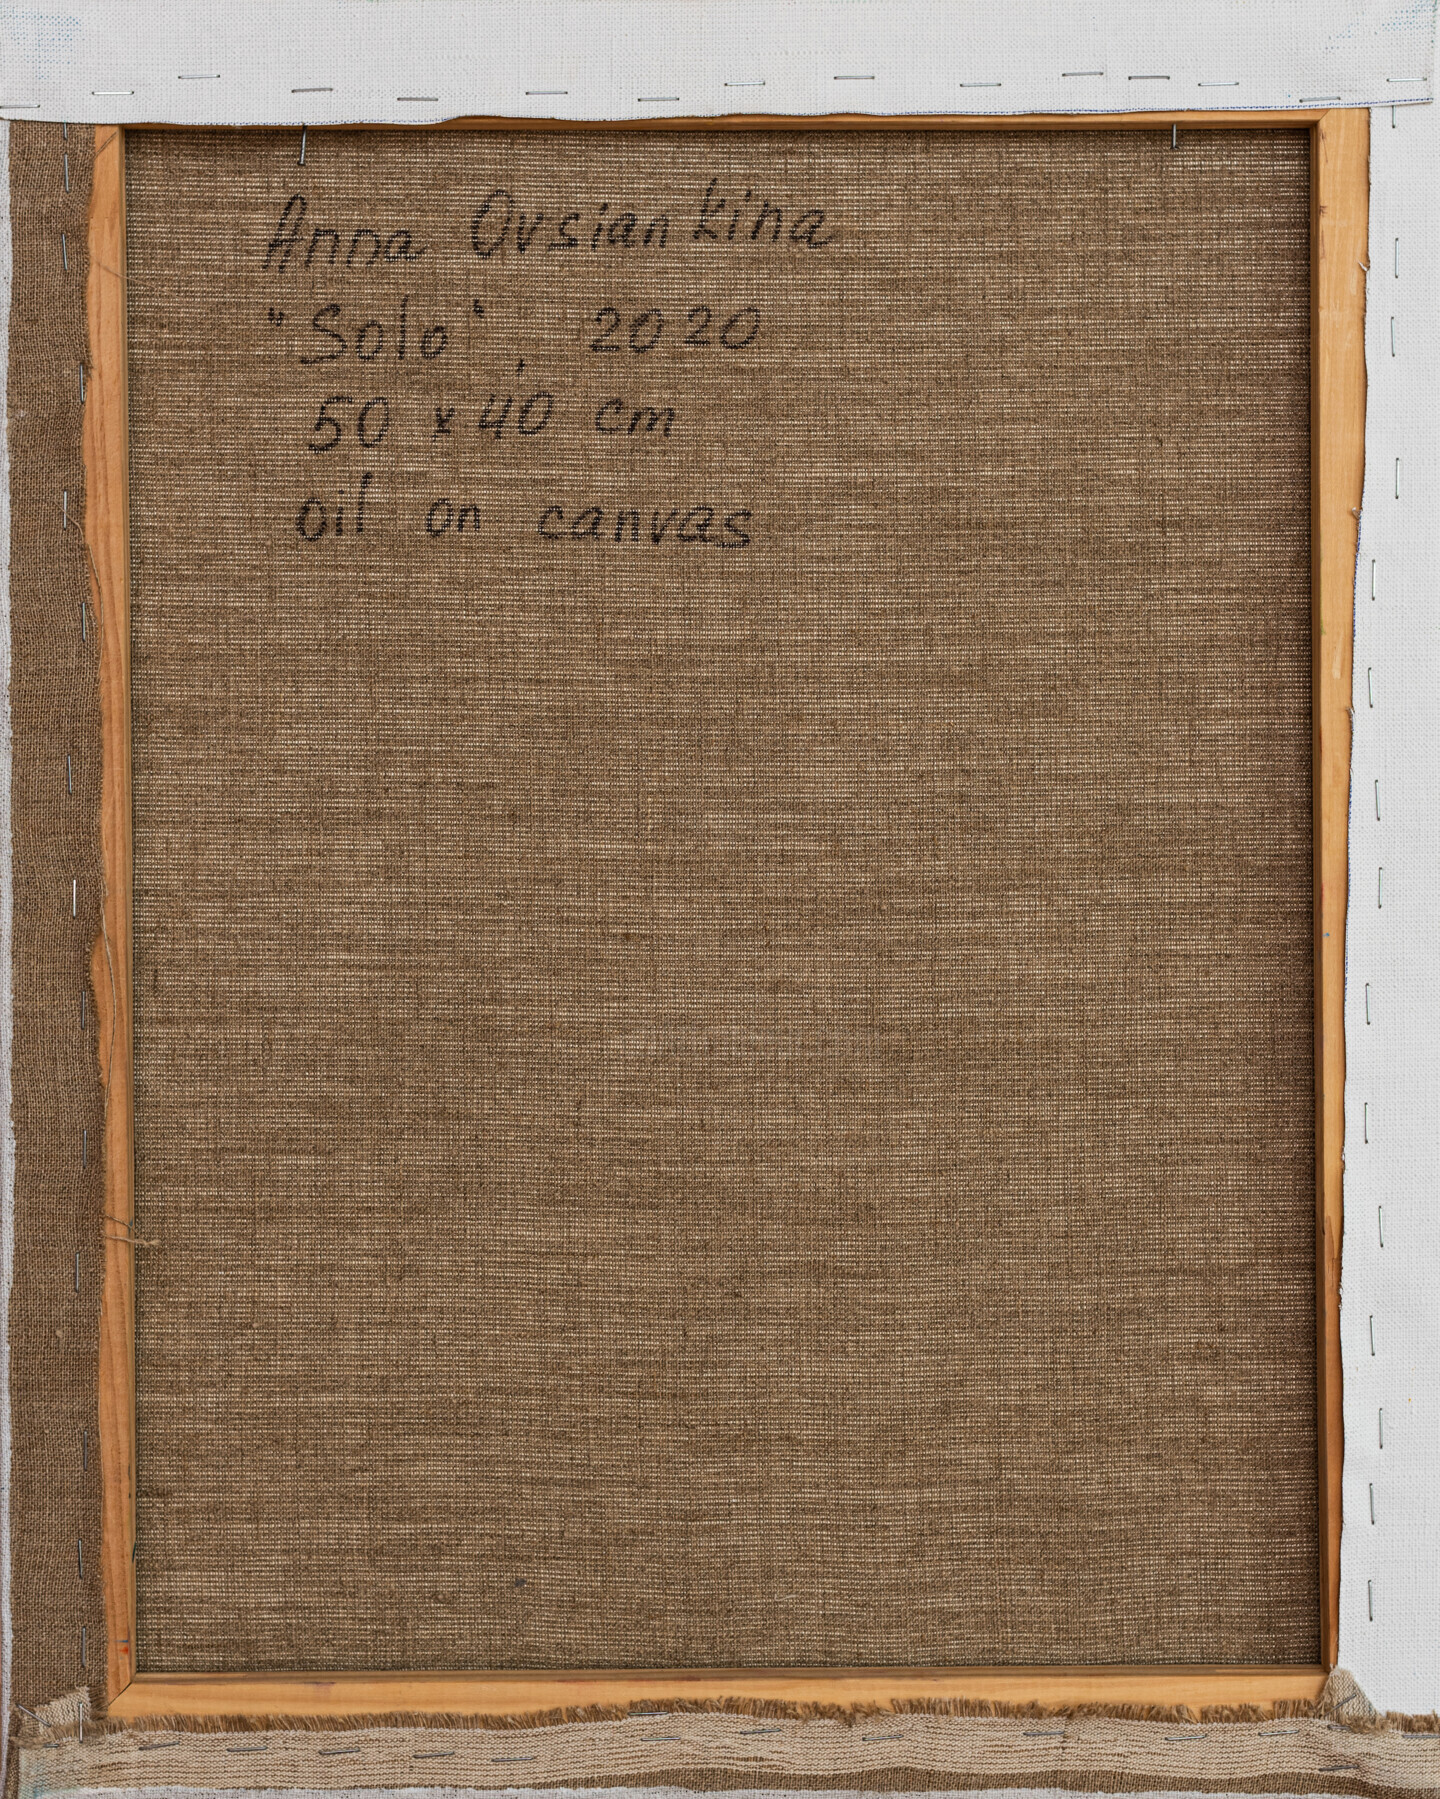 Anna Ovsiankina
"Solo", 2020
50 x 40 cm
oil on canvas